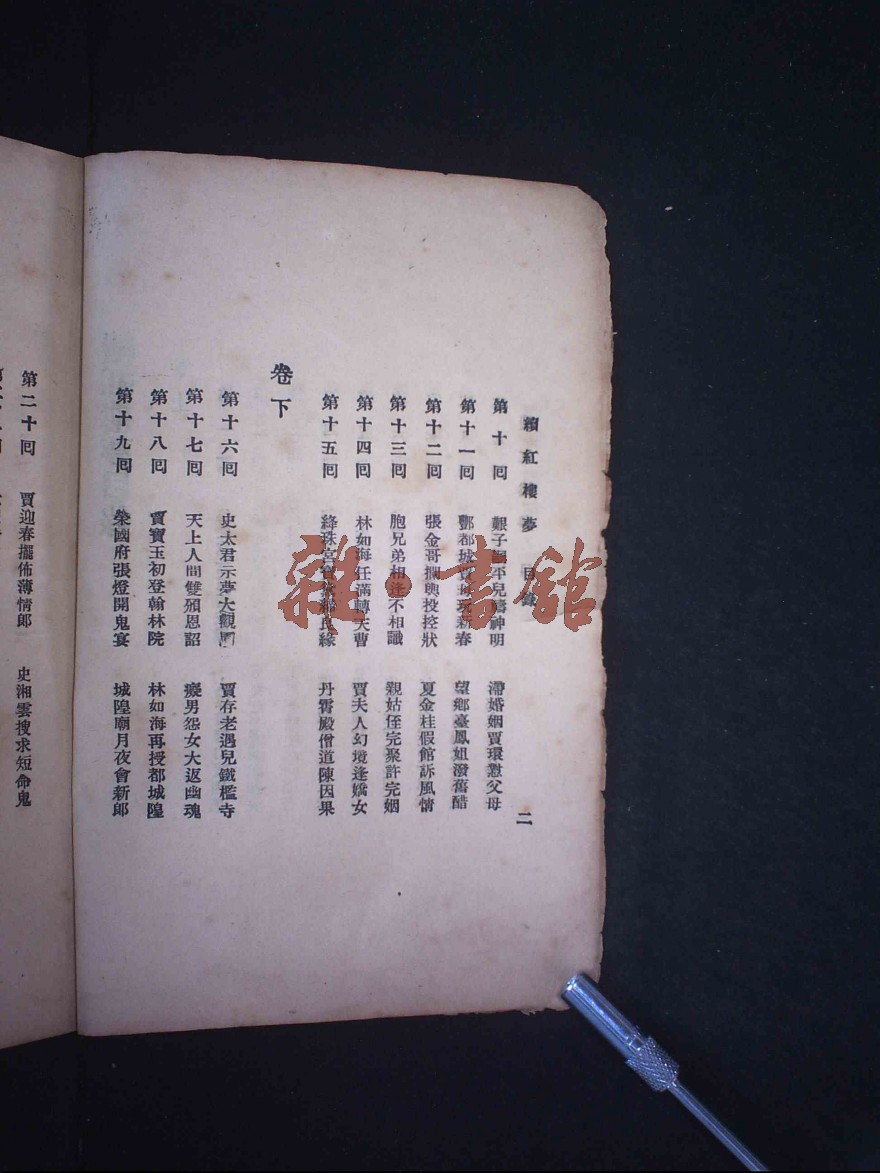 續紅樓夢 目錄 二
第十回 艱子嗣平兒禱神明 滯婚姻賈環懟父母
第十一回 酆都城賈母玩新春 望鄉臺鳳姐潑舊醋
第十二回 張金哥攔輿投控狀 夏金桂假館訴風情
第十三回 胞兄弟相逢不相識 親姑侄完聚許完姻
第十四回 林如海任滿轉天曹 賈夫人幻境逢嬌女
第十五回 絳珠宮 良緣 丹霄殿僧道陳因果
卷下
第十六回 史太君示夢大觀園 賈存老遇兒鐵檻寺
第十七回 天上人間雙頒恩詔 癡男怨女大返幽魂
第十八回 賈寶玉初登翰林院 林如海再授都城隍
第十九回 榮國府張燈開鬼宴 城隍廟月夜會新郎
第二十回 賈迎春擺佈薄情郎 史湘雲搜求短命鬼
雜·書館